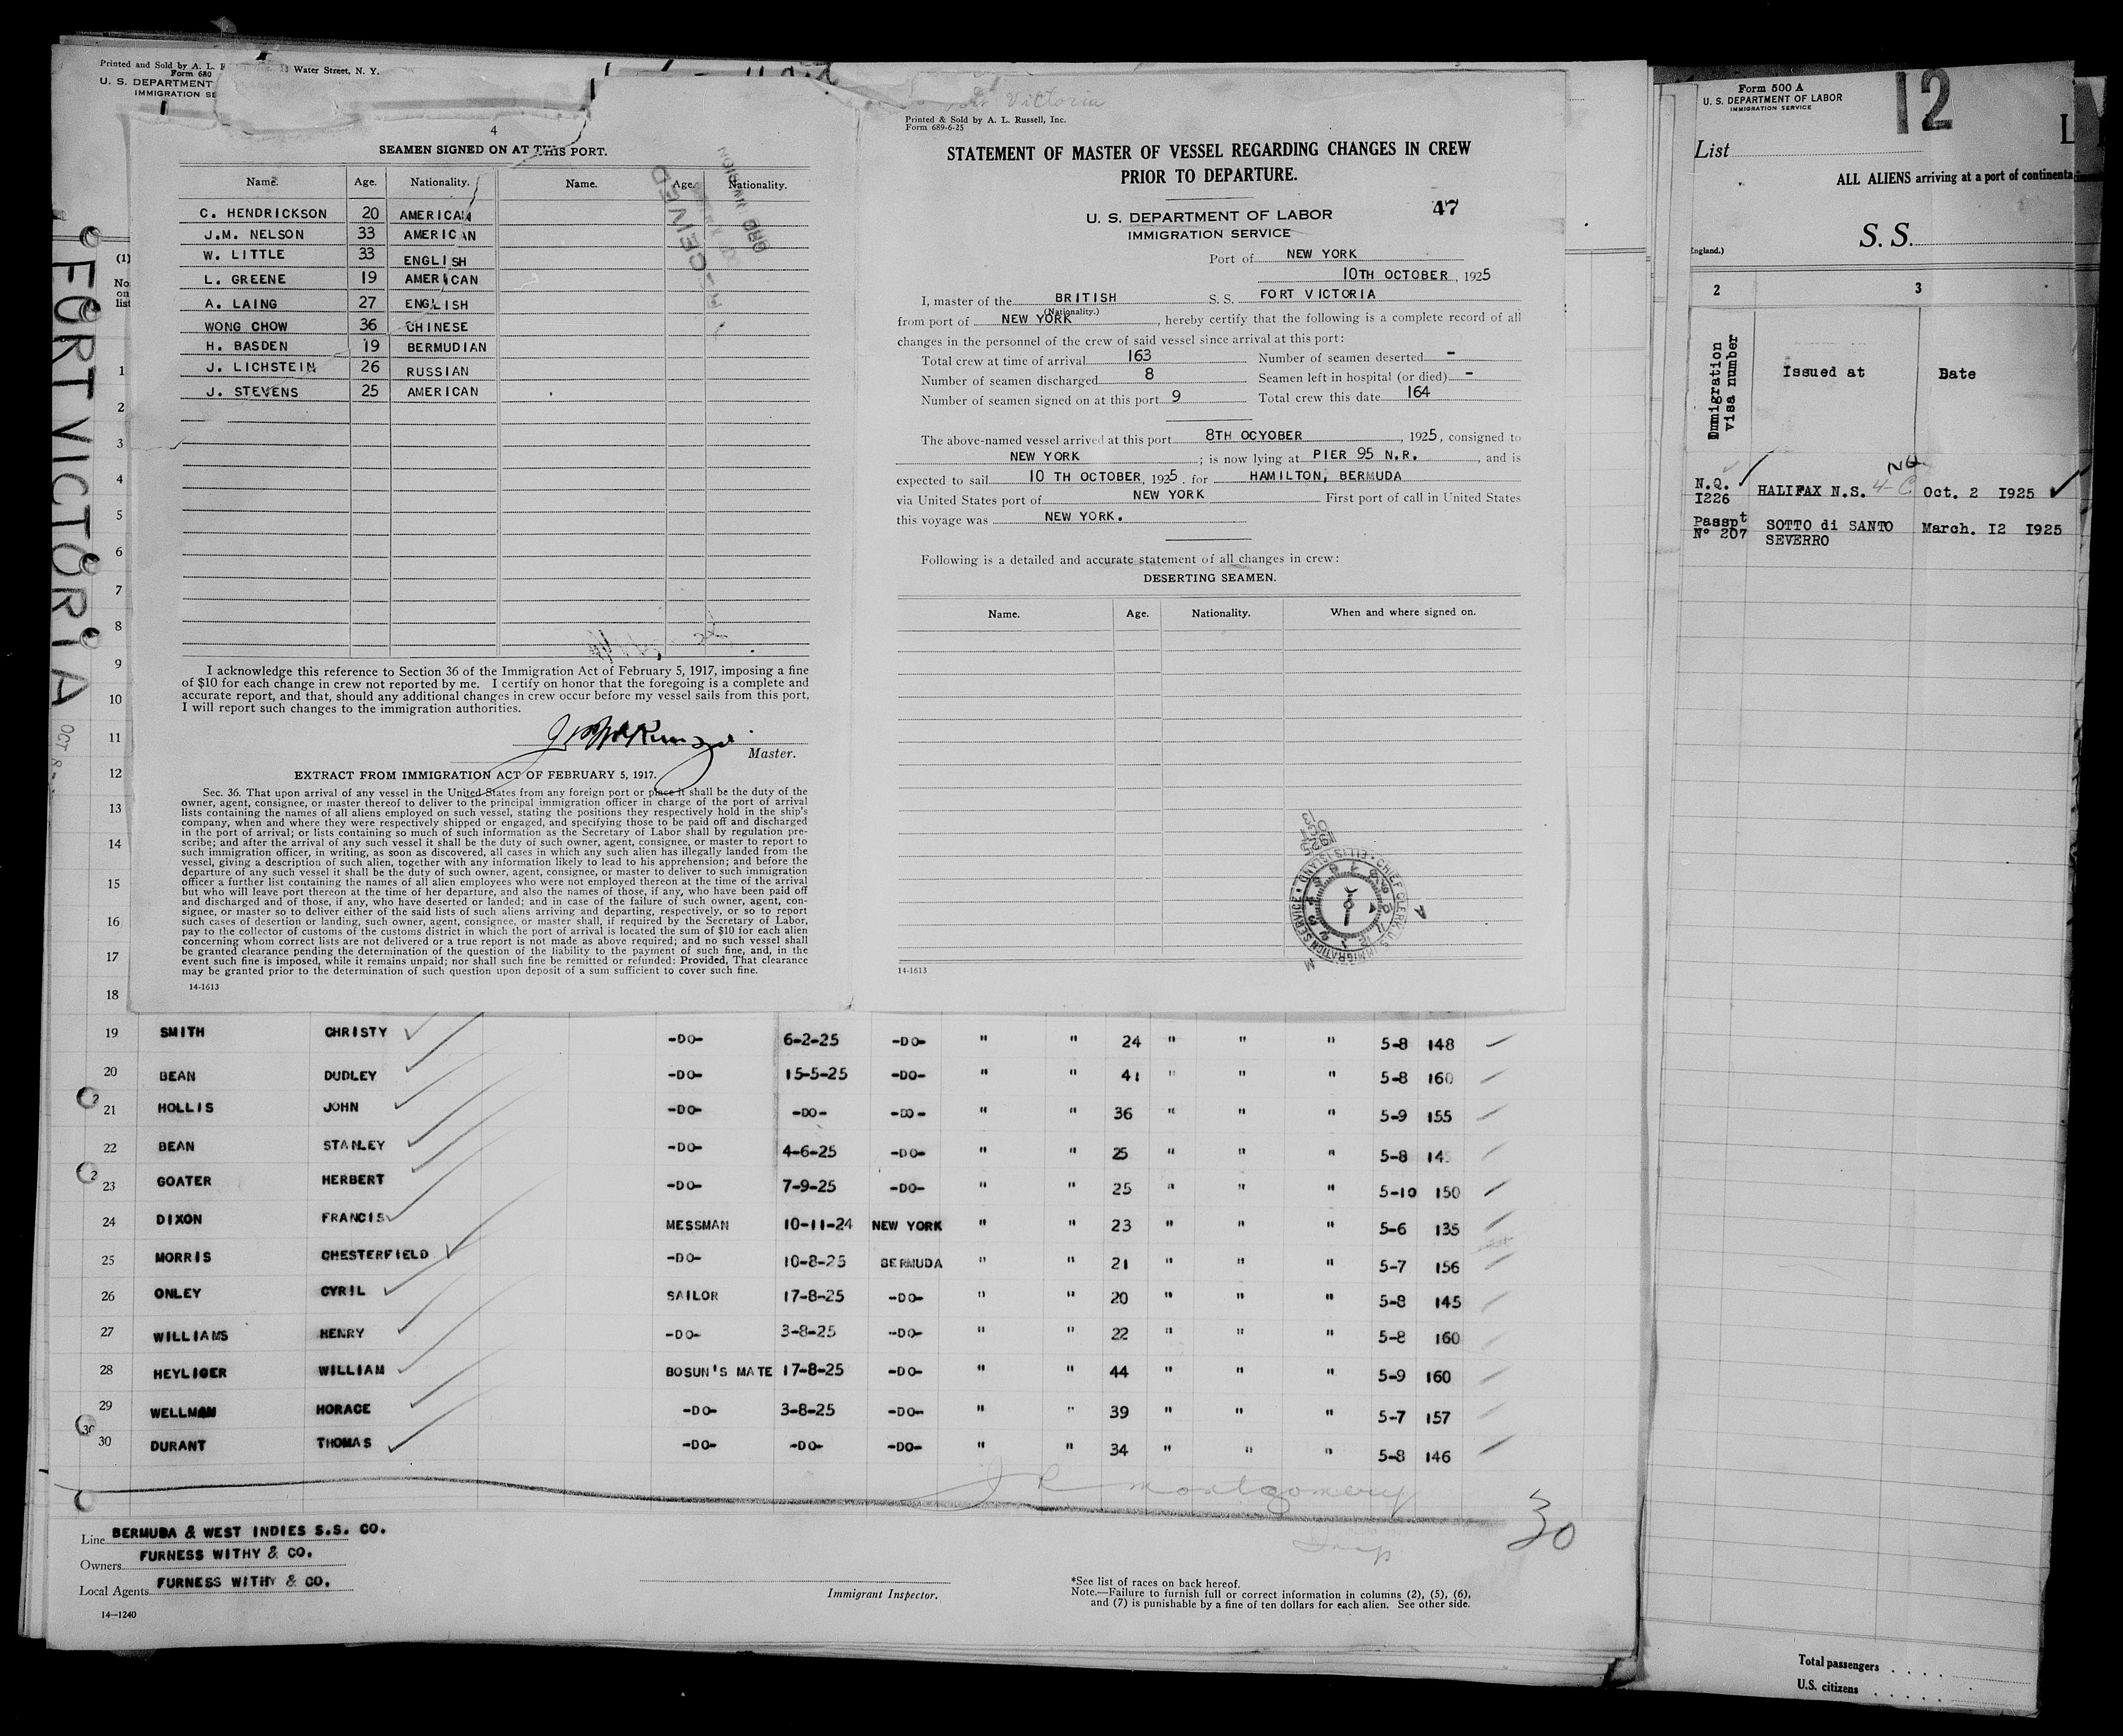 Printed and Sold by A. L. Water Street, N. Y.
Form 680
U. S. DEPARTMENT
IMMIGRATION
FORT VICTORIA
OCT 8
(1)
No
on
list
4
SEAMEN SIGNED ON AT THIS PORT.
Name. Age. Nationality. Name. Age. Nationality.
C. HENDRICKSON 20 AMERICAN
J.M. NELSON 33 AMERICAN
W. LITTLE 33 ENGLISH
L. GREENE 19 AMERICAN
A. LAING 27 ENGLISH
WONG CHOW 36 CHINESE
H. BASDEN 19 BERMUDIAN
J. LICHSTEIN 26 RUSSIAN
J. STEVENS 25 AMERICAN
I acknowledge this reference to Section 36 of the Immigration Act of February 5, 1917, imposing a fine
of $10 for each change in crew not reported by me. I certify on honor that the foregoing is a complete and
accurate report, and that, should any additional changes in crew occur before my vessel sails from this port,
I will report such changes to the immigration authorities.
Master.
EXTRACT FROM IMMIGRATION ACT OF FEBRUARY 5, 1917.
Sec. 36. That upon arrival of any vessel in the United States from any foreign port or place it shall be the duty of the
owner, agent, consignee, or master thereof to deliver to the principal immigration officer in charge of the port of arrival
lists containing the names of all aliens employed on such vessel, stating the positions they respectively hold in the ship's
company, when and where they were respectively shipped or engaged, and specifying those to be paid off and discharged
in the port of arrival; or lists containing so much of such information as the Secretary of Labor shall by regulation pre-
scribe; and after the arrival of any such vessel it shall be the duty of such owner, agent, consignee, or master to report to
such immigration officer, in writing, as soon as discovered, all cases in which any such alien has illegally landed from the
vessel, giving a description of such alien, together with any information likely to lead to his apprehension; and before the
departure of any such vessel it shall be the duty of such owner, agent, consignee, or master to deliver to such immigration
officer a further list containing the names of all alien employees who were not employed thereon at the time of the arrival
but who will leave port thereon at the time of her departure, and also the names of those, if any, who have been paid off
and discharged and of those, if any, who have deserted or landed; and in case of the failure of such owner, agent, con-
signee, or master so to deliver either of the said lists of such aliens arriving and departing, respectively, or so to report
such cases of desertion or landing, such owner, agent, consignee, or master shall, if required by the Secretary of Labor,
pay to the collector of customs of the customs district in which the port of arrival is located the sum of $10 for each alien
concerning whom correct lists are not delivered or a true report is not made as above required; and no such vessel shall
be granted clearance pending the determination of the question of the liability to the payment of such fine, and, in the
event such fine is imposed, while it remains unpaid; nor shall such fine be remitted or refunded: Provided, That clearance
may be granted prior to the determination of such question upon deposit of a sum sufficient to cover such fine.
14-1613
Victoria
Printed & Sold by A. L. Russell, Inc.
Form 689-6-25
STATEMENT OF MASTER OF VESSEL REGARDING CHANGES IN CREW
PRIOR TO DEPARTURE.
U. S. DEPARTMENT OF LABOR 47
IMMIGRATION SERVICE
Port of NEW YORK
10TH OCTOBER, 1925
I, master of the BRITISH S. S. FORT VICTORIA
(Nationality.)
from port of NEW YORK, hereby certify that the following is a complete record of all
changes in the personnel of the crew of said vessel since arrival at this port:
Total crew at time of arrival 163 Number of seamen deserted -
Number of seamen discharged 8 Seamen left in hospital (or died) -
Number of seamen signed on at this port 9 Total crew this date 164
The above-named vessel arrived at this port 8TH OCYOBER, 1925, consigned to
NEW YORK; is now lying at PIER 95 N.R., and is
expected to sail 10 TH OCTOBER, 1925. for HAMILTON, BERMUDA
via United States port of NEW YORK First port of call in United States
this voyage was NEW YORK.
Following is a detailed and accurate statement of all changes in crew:
DESERTING SEAMEN.
Name. Age. Nationality. When and where signed on.
CHIEF CLERK, U.S. IMMIGRATION SERVICE • ELLIS ISLAND •
14-1613
1
2
3
4
5
6
7
8
9
10
11
12
13
14
15
16
17
18
19 SMITH CHRISTY -DO- 6-2-25 -DO- " " 24 " " " 5-8 148
20 BEAN DUDLEY -DO- 15-5-25 -DO- " " 41 " " " 5-8 160
21 HOLLIS JOHN -DO- -DO- -DO- " " 36 " " " 5-9 155
22 BEAN STANLEY -DO- 4-6-25 -DO- " " 25 " " " 5-8
23 GOATER HERBERT -DO- 7-9-25 -DO- " " 25 " " " 5-10 150
24 DIXON FRANCIS MESSMAN 10-11-24 NEW YORK " " 23 " " " 5-6 135
25 MORRIS CHESTERFIELD -DO- 10-8-25 BERMUDA " " 21 " " " 5-7 156
26 ONLEY CYRIL SAILOR 17-8-25 -DO- " " 20 " " " 5-8 145
27 WILLIAMS HENRY -DO- 3-8-25 -DO- " " 22 " " " 5-8 160
28 HEYLIGER WILLIAM BOSUN'S MATE 17-8-25 -DO- " " 44 " " " 5-9 160
29 WELLMAN HORACE -DO- 3-8-25 -DO- " " 39 " " " 5-7 157
30 DURANT THOMAS -DO- -DO- -DO- " " 34 " " " 5-8 146
J R Montgomery
Insp
30
Line BERMUDA & WEST INDIES S.S. CO.
Owners FURNESS WITHY & CO.
Local Agents FURNESS WITHY & CO.
14-1240
Immigrant Inspector.
*See list of races on back hereof.
Note.—Failure to furnish full or correct information in columns (2), (5), (6),
and (7) is punishable by a fine of ten dollars for each alien. See other side.
Form 500 A
U. S. DEPARTMENT OF LABOR
IMMIGRATION SERVICE
12
List
ALL ALIENS arriving at a port of continenta
S. S.
England.)
2 3
Immigration visa number Issued at Date
N.Q. I226 HALIFAX N.S. 4-C Oct. 2 1925
Passpt Nº 207 SOTTO di SANTO SEVERRO March. I2 I925
Total passengers
U.S. citizens